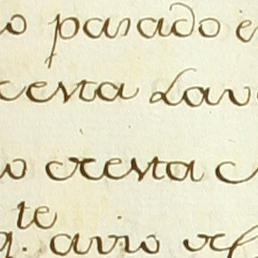 o pasado e
cesta Lav
o cresta c
te
q. avio